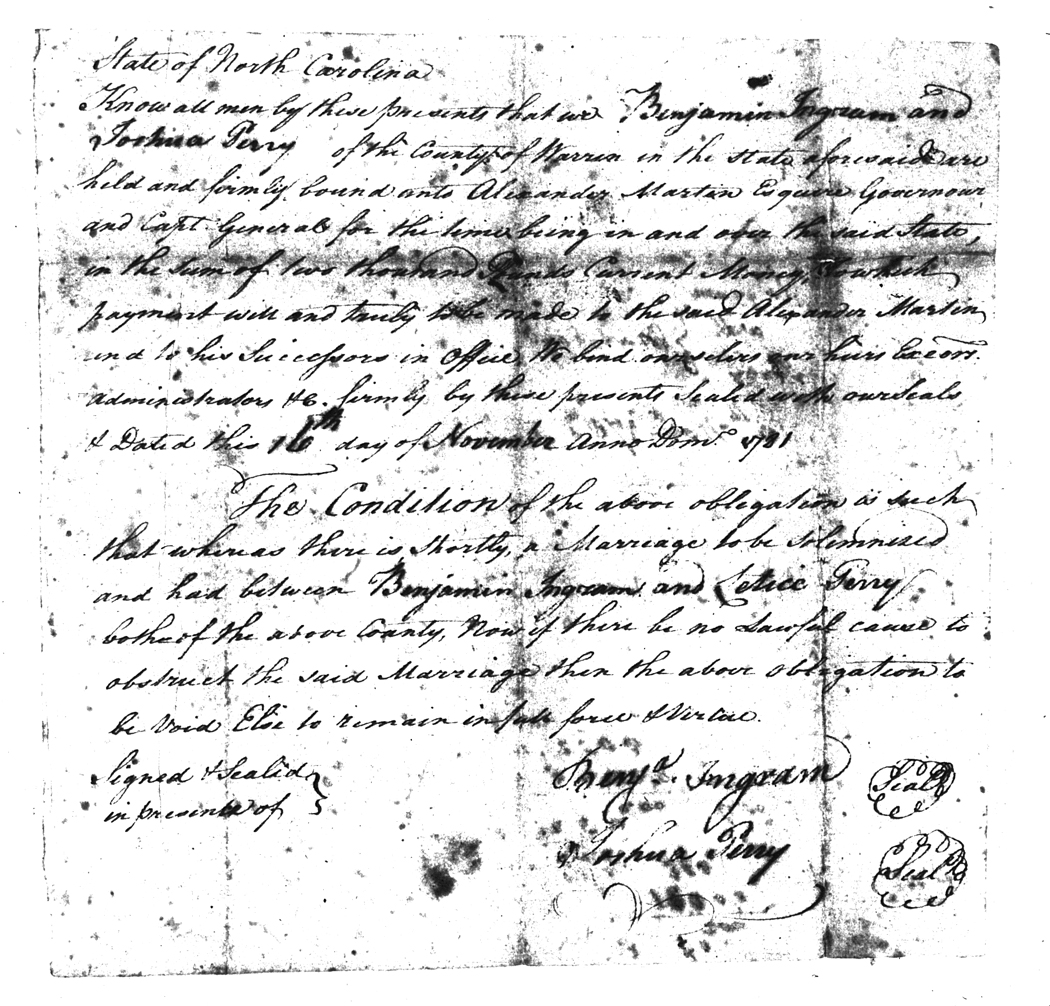 State of North Carolina
Know all men by these presents that we Benjamin Ingram and
Joshua Perry of the County of Warren in the State aforesaid are
held and firmly bound unto Alexander Martin Esquire Governour
and Capt. General for the time being in and over the said State,
in the sum of two thousand Pounds Current Money, to which
payment well and truly to be made to the said Alexander Martin
and to his Successors in Office We bind ourselves our heirs Exeors.
administrators &c. firmly by these presents Sealed with our Seals
& Dated this 16th day of November Anno Dom. 1781
The Condition of the above obligation is such
that whereas there is Shortly, a Marriage to be Solemnized
and had between Benjamin Ingram and Letice Perry
both of the above County, Now if there be no Lawful cause to
obstruct the said Marriage then the above obligation to
be Void Else to remain in full force & Virtue.
Signed & Sealed
in presents of
Benja. Ingram Seal
Joshua Perry Seal